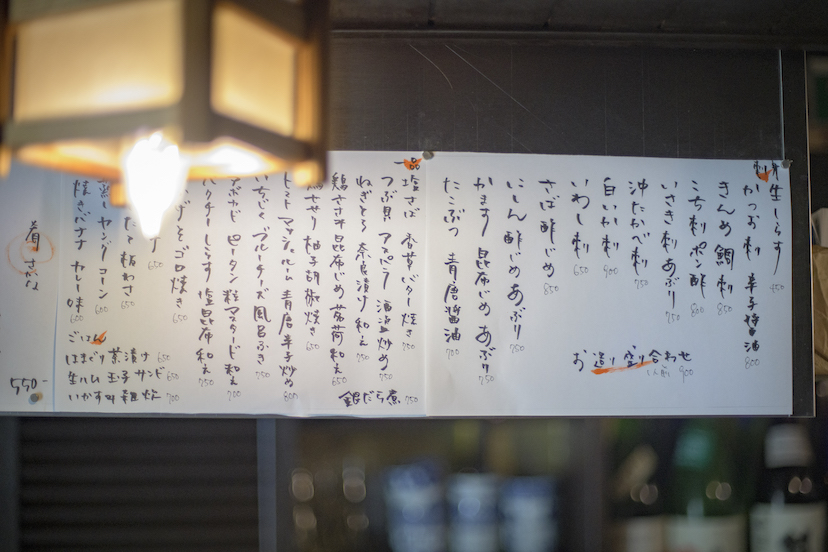 刺身
生しらす 450
かつお刺 辛子醤油 800
きんめ鯛刺 850
こち刺 ポン酢 800
いさき刺 あぶり 750
沖たかべ刺 750
白いか刺 900
いわし刺 650
さば酢じめ 850
にしん酢じめ あぶり 750
かます昆布じめ あぶり 750
たこぶつ 青唐醤油 700
お造り盛り合わせ
一人前 900
一品
塩さば 香草バター焼き 700
つぶ貝 アスパラ 酒盗炒め 750
ねぎとろ 奈良漬け和え 700
鶏ささみ昆布じめ 茗荷和え 650
柚子胡椒焼き 650
トマト マッシュルーム 青唐辛子炒め 800
いちじく ブルーチーズ 風呂ふき 750
アボカド ピータン 粒マスタード和え 700
パクチー しらす 塩昆布和え 650
ゴロ焼き 650
650
板わさ 650
ヤングコーン 600
焼きバナナ カレー味 600
銀だら煮 750
ごはん
はまぐり茶漬け 650
生ハム 玉子サンド 650
雑炊 700
550-